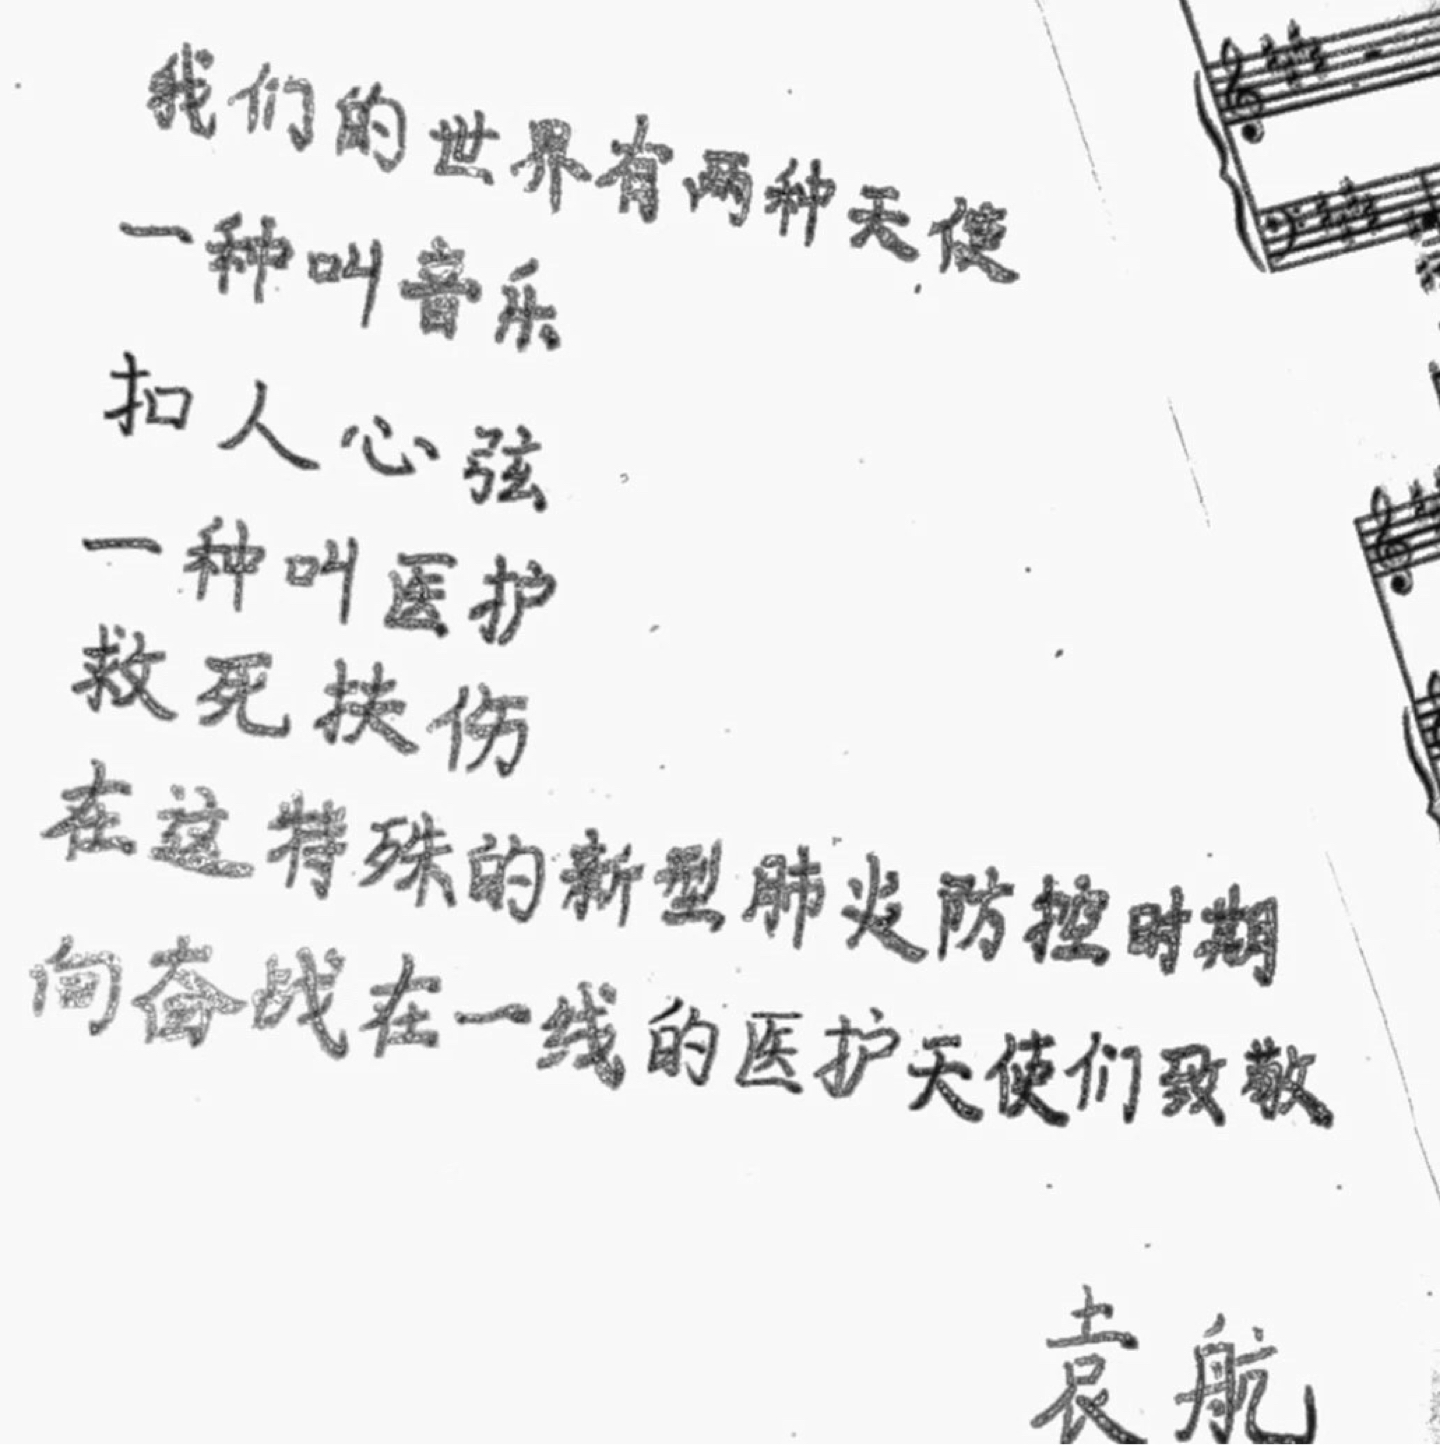 我们的世界有两种天使
一种叫音乐
扣人心弦
一种叫医护
救死扶伤
在这特殊的新型肺炎防控时期
向奋战在一线的医护天使们致敬
袁航